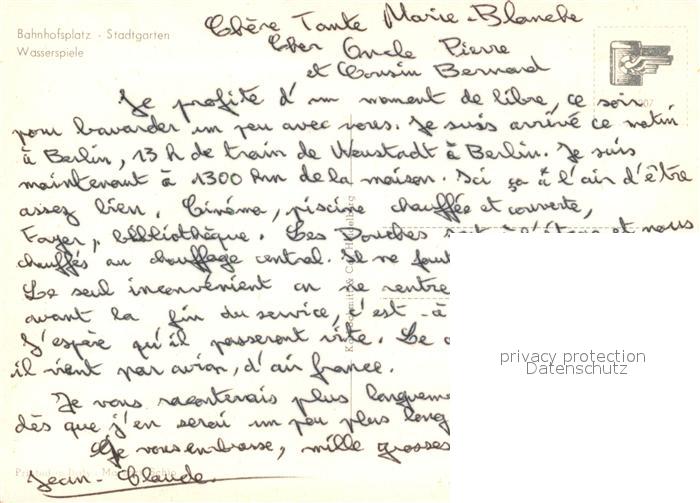 Bahnhofsplatz - Stadtgarten
Wasserspiele
Chère Tante Marie-Blanche
Cher Oncle Pierre
et Cousin Bernard
Je profite d'un moment de libre, ce soir
pour bavarder un peu avec vous. Je suis arrivé ce matin
à Berlin, 13 h de train de Neustadt à Berlin. Je suis
maintenant à 1300 km de la maison. Ici ça a l'air d'être
assez bien. Cinéma, piscine chauffée et couverte,
Foyer, bibliothèque. Les Douches sont à l'étage et nous
chauffés au chauffage central. Il ne faut
Le seul inconvénient on ne rentre
avant la fin du service, c'est-à
J'espère qu'il passeront vite. Le
il vient par avion, d'air france.
Je vous raconterais plus longueme
dès que j'en serai un peu plus long
Je vous embrasse, mille grosses
Jean-Claude.
privacy protection
Datenschutz